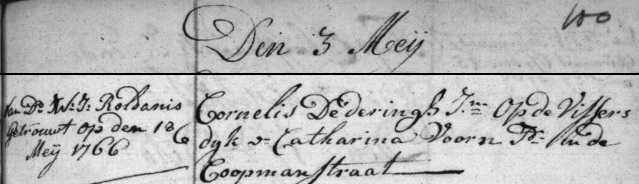 100
Den 3 Meij
Van Ds W: J: Roldanis
Getrouwt op den 18
Meij 1766
Cornelis Dederingh Jm Op de Vissers
dyk & Catharina Voorn Jd In de
Coopman Straat